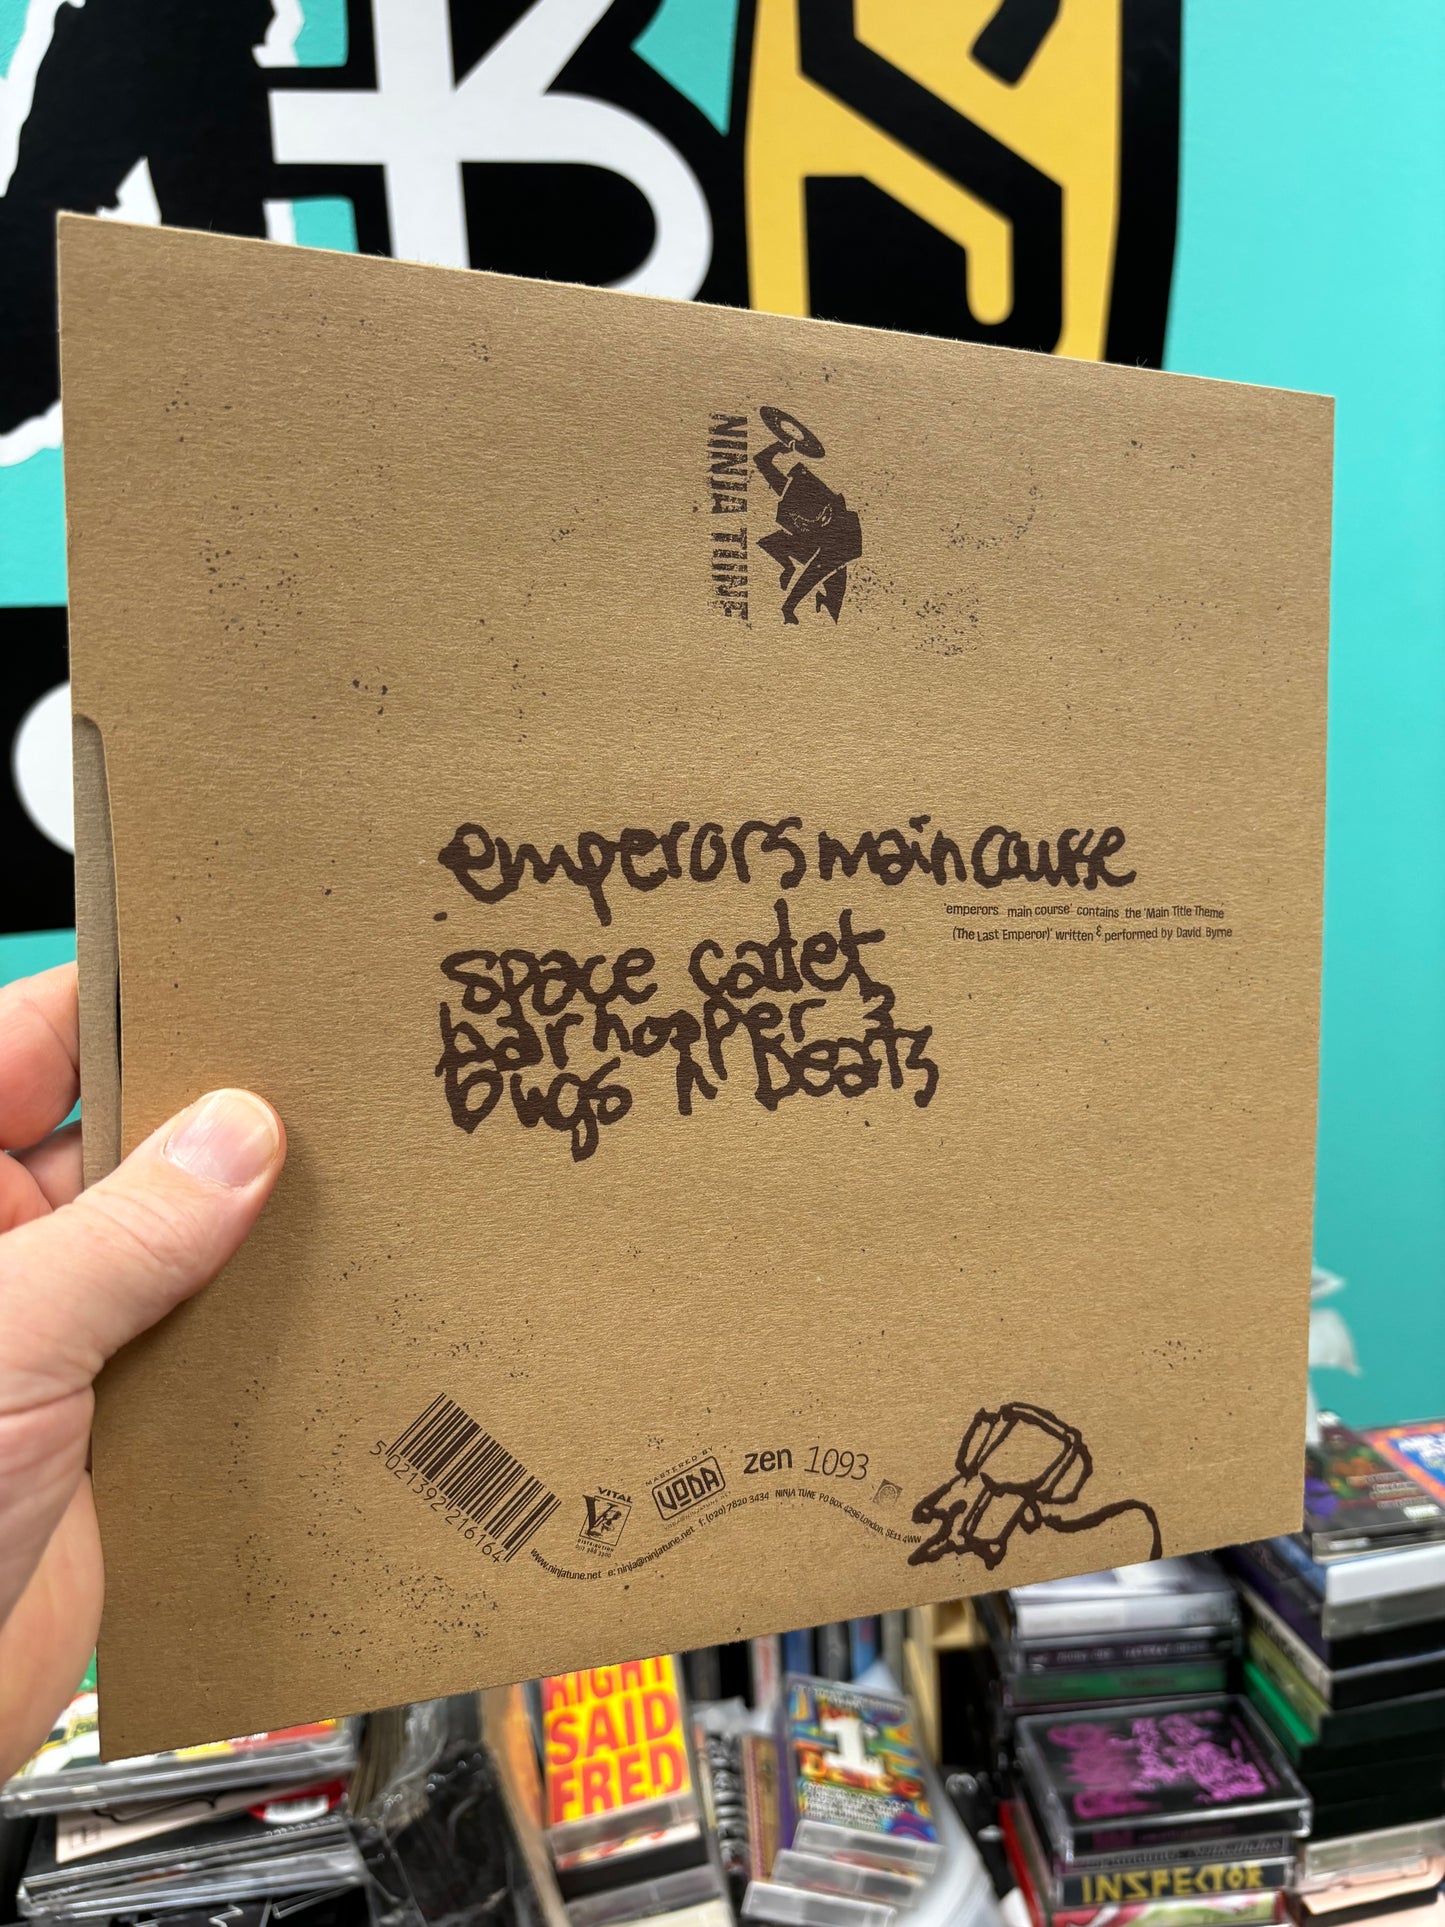 BS
NINJA TUNE
emperors main course
'emperors main course' contains the 'Main Title Theme
(The Last Emperor)' written & performed by David Byrne
space cadet
barhopper 3
bugs n beats
5 021392 216164
VITAL
DISTRIBUTION
MASTERED BY
VODA
zen 1093
www.ninjatune.net e: ninja@ninjatune.net f: (020) 7820 3434 NINJA TUNE PO BOX 4296 London, SE11 4WW
RIGHT
SAID
FRED
1
Dance
INSPECTOR